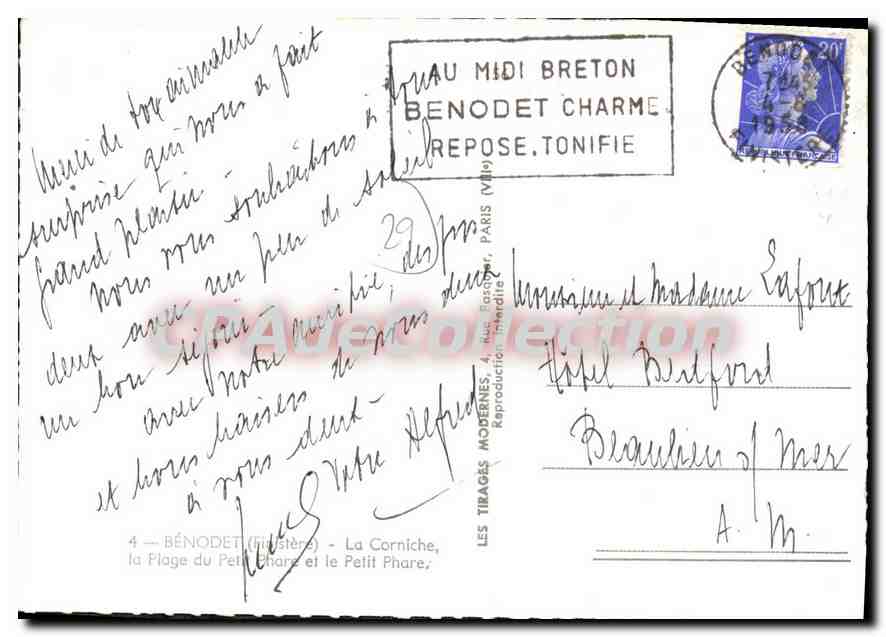 Merci de votre aimable
surprise qui nous a fait
grand plaisir -
Nous vous souhaitons à tous
deux avec un peu de soleil
un bon séjour -
avec notre amitié, des
et bons baisers de nous deux
à vous deux -
Votre Alfred
29
AU MIDI BRETON
BENODET CHARME
REPOSE, TONIFIE
BENODET
1958
FINISTERE
20F
Monsieur et Madame Lafont
Hôtel Bedford
Beaulieu s/ Mer
A. M.
LES TIRAGES MODERNES, 4, Rue Pasquier, PARIS (VIIIe)
Reproduction Interdite
4 — BÉNODET (Finistère) - La Corniche,
la Plage du Petit Phare et le Petit Phare,
CPAdeCollection